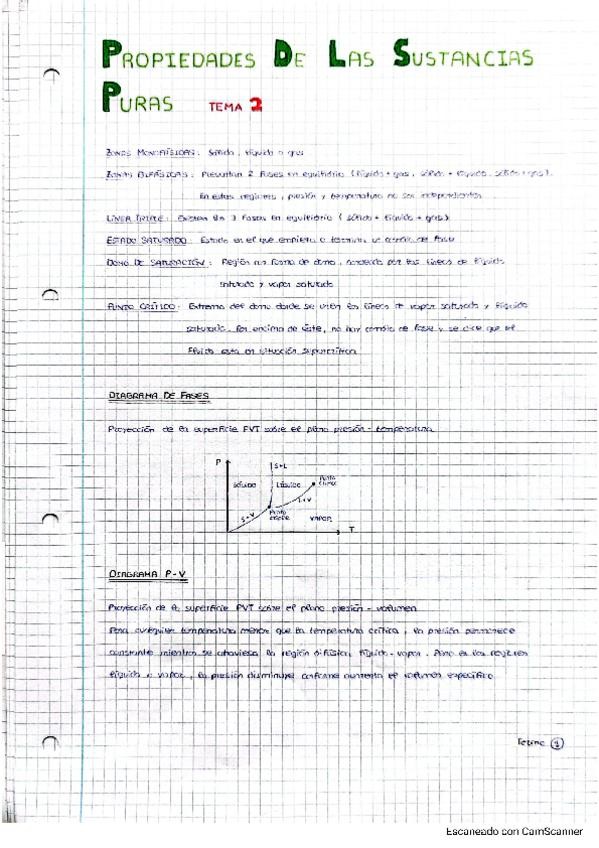 PROPIEDADES DE LAS SUSTANCIAS
PURAS TEMA 2
ZONAS MONOFÁSICAS: Sólido, líquido o gas
ZONAS BIFÁSICAS: Presentan 2 fases en equilibrio (líquido + gas, sólido + líquido, sólido + gas).
En estas regiones, presión y temperatura no son independientes
LÍNEA TRIPLE: Existen las 3 fases en equilibrio (sólido + líquido + gas)
ESTADO SATURADO: Estado en el que empieza o termina un cambio de fase
DOMO DE SATURACIÓN: Región con forma de domo, por las líneas de líquido
saturado y vapor saturado
PUNTO CRÍTICO: Extremo del domo donde se unen las líneas de vapor saturado y líquido
saturado. Por encima de éste, no hay cambio de fase y se dice que el
fluido está en situación supercrítica
DIAGRAMA DE FASES
Proyección de la superficie PVT sobre el plano presión - temperatura
P
S+L
SÓLIDO LÍQUIDO Punto
L+V
S+V Punto
triple VAPOR
T
DIAGRAMA P-V
Proyección de la superficie PVT sobre el plano presión - volumen
Para cualquier temperatura menor que la temperatura crítica, la presión permanece
constante mientras se atraviesa la región bifásica líquido - vapor. en las regiones
líquido o vapor, la presión disminuye conforme aumenta el volumen específico
1
Escaneado con CamScanner